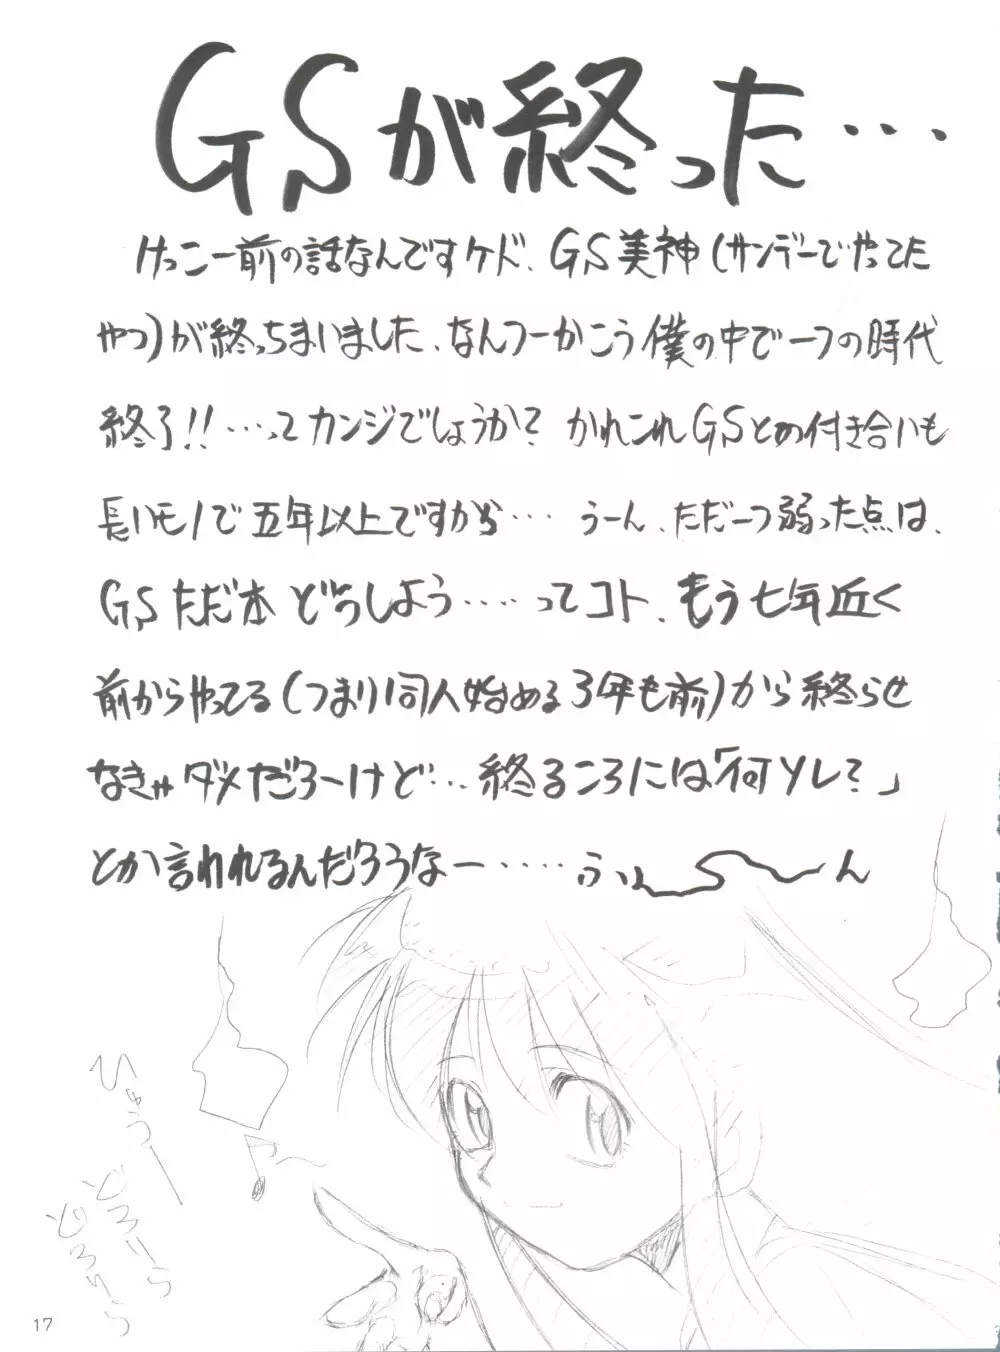 GSが終った…
けっこー前の話なんですケド、GS美神(サンデーでやってた
やつ)が終っちまいました、なんつーかこう僕の中で一つの時代
終了!!…ってカンジでしょうか? かれこれGSとの付き合いも
長いモノで五年以上ですから… うーん、ただ一つ弱った点は、
GSただ本どうしよう‥‥ってコト、もう七年近く
前からやってる(つまり同人始める3年も前)から終らせ
なきゃダメだろーけど…終るころには「何ソレ?」
とか言われるんだろうなー‥‥‥ふぃ〜〜ん
ひゅうー
どろりろ
どろりろ
17